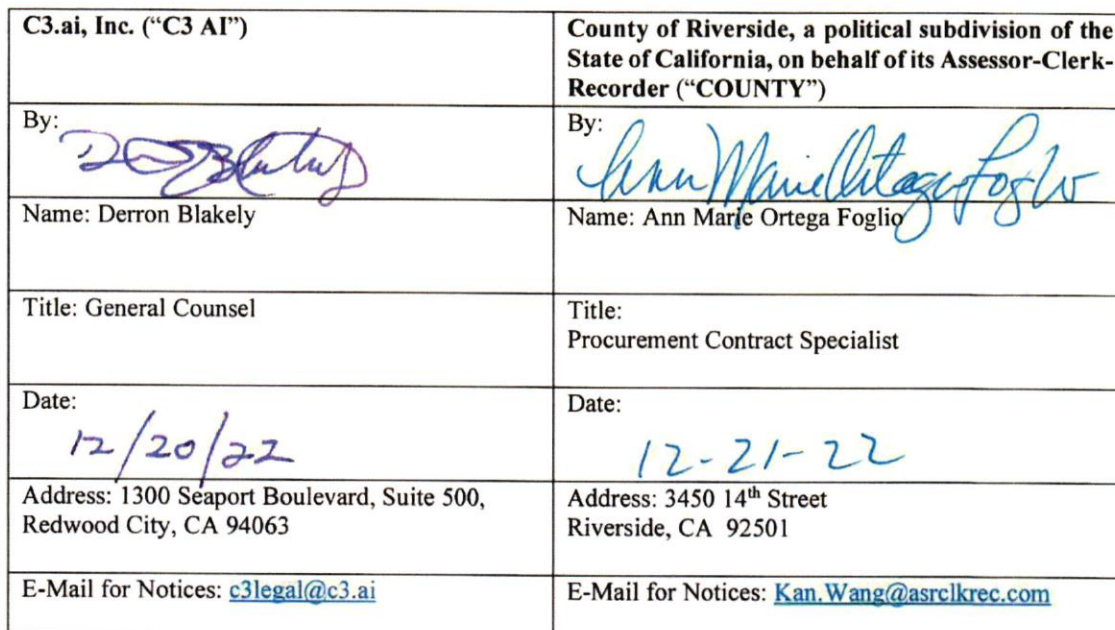 C3.ai, Inc. (“C3 AI”)
County of Riverside, a political subdivision of the
State of California, on behalf of its Assessor-Clerk-
Recorder (“COUNTY”)
By:
By:
Ann Marie Ortega Foglio
Name: Derron Blakely
Name: Ann Marie Ortega Foglio
Title: General Counsel
Title:
Procurement Contract Specialist
Date:
12/20/22
Date:
12-21-22
Address: 1300 Seaport Boulevard, Suite 500,
Redwood City, CA 94063
Address: 3450 14th Street
Riverside, CA 92501
E-Mail for Notices: c3legal@c3.ai
E-Mail for Notices: Kan.Wang@asrclkrec.com